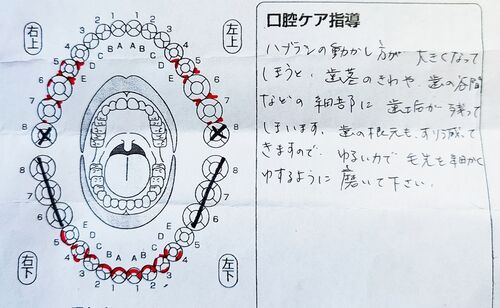 口腔ケア指導
ハブラシの動かし方が 大きくなって
しまうと、歯茎のきわや、歯の谷間
などの細部に 歯垢が残って
しまいます。歯の根元も、すり減って
きますので、ゆるい力で 毛先を細かく
ゆするように 磨いて下さい。
右上
左上
右下
左下
1 1
2 2
3 3
4 4
5 5
6 6
7 7
8 8
A A
B B
C C
D D
E E
8 8
7 7
6 6
5 5
4 4
3 3
2 2
1 1
E E
D D
C C
B A A B